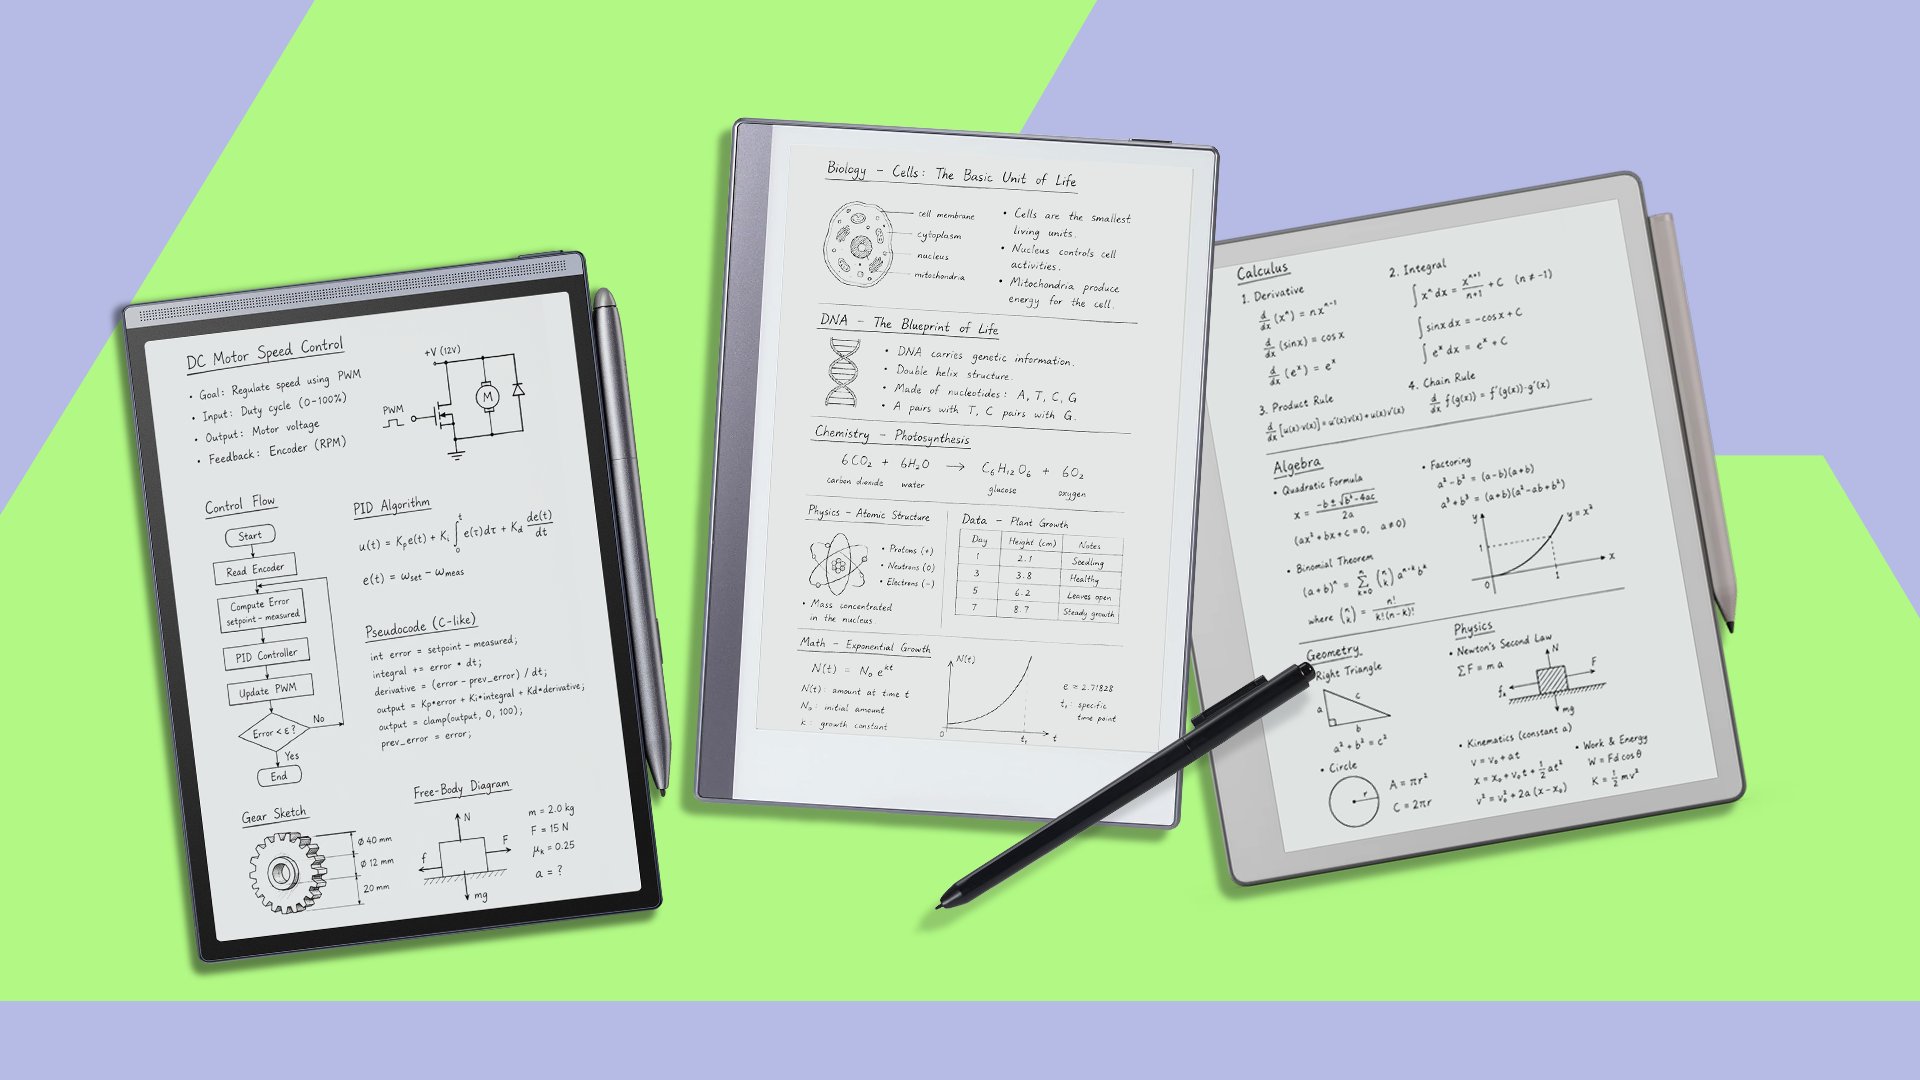 DC Motor Speed Control
• Goal: Regulate speed using PWM
• Input: Duty cycle (0-100%)
• Output: Motor voltage
• Feedback: Encoder (RPM)
+V (12V)
M
PWM
Control Flow
Start
Read Encoder
Compute Error
setpoint - measured
PID Controller
Update PWM
Error < ε?
No
Yes
End
PID Algorithm
u(t) = Kₚe(t) + Kᵢ ∫₀ᵗ e(τ)dτ + K_d de(t)/dt
e(t) = ω_set - ω_meas
Pseudocode (C-like)
int error = setpoint - measured;
integral += error * dt;
derivative = (error - prev_error) / dt;
output = Kp*error + Ki*integral + Kd*derivative;
output = clamp(output, 0, 100);
prev_error = error;
Gear Sketch
Ø 40 mm
Ø 12 mm
20 mm
Free-Body Diagram
N
F
f
mg
m = 2.0 kg
F = 15 N
μₖ = 0.25
a = ?
Biology - Cells: The Basic Unit of Life
cell membrane
cytoplasm
nucleus
mitochondria
• Cells are the smallest
living units.
• Nucleus controls cell
activities.
• Mitochondria produce
energy for the cell.
DNA - The Blueprint of Life
• DNA carries genetic information.
• Double helix structure.
• Made of nucleotides: A, T, C, G
• A pairs with T, C pairs with G.
Chemistry - Photosynthesis
6CO₂ + 6H₂O → C₆H₁₂O₆ + 6O₂
carbon dioxide water glucose oxygen
Physics - Atomic Structure
• Protons (+)
• Neutrons (0)
• Electrons (-)
• Mass concentrated
in the nucleus.
Data - Plant Growth
Day Height (cm) Notes
1 2.1 Seedling
3 3.8 Healthy
5 6.2 Leaves open
7 8.7 Steady growth
Math - Exponential Growth
N(t) = N₀ e^kt
N(t): amount at time t
N₀: initial amount
k: growth constant
N(t)
0
t₁
t
e ≈ 2.71828
t₁: specific
time point
Calculus
1. Derivative
d/dx (xⁿ) = nxⁿ⁻¹
d/dx (sinx) = cosx
d/dx (eˣ) = eˣ
2. Integral
∫ xⁿ dx = xⁿ⁺¹/n+1 + C (n ≠ -1)
∫ sinx dx = -cosx + C
∫ eˣ dx = eˣ + C
3. Product Rule
d/dx [u(x)·v(x)] = u'(x)v(x) + u(x)v'(x)
4. Chain Rule
d/dx f(g(x)) = f'(g(x))·g'(x)
Algebra
• Quadratic Formula
x = -b ± √b²-4ac / 2a
(ax² + bx + c = 0, a ≠ 0)
• Binomial Theorem
(a+b)ⁿ = Σ k=0 n (n k) aⁿ⁻ᵏ bᵏ
where (n k) = n! / k!(n-k)!
• Factoring
a² - b² = (a-b)(a+b)
a³ + b³ = (a+b)(a²-ab+b²)
y
y = x²
1
0
1
x
Geometry
Right Triangle
a
c
b
a² + b² = c²
• Circle
r
A = πr²
C = 2πr
Physics
• Newton's Second Law
ΣF = ma
N
F
fₖ
mg
• Kinematics (constant a)
v = v₀ + at
x = x₀ + v₀t + 1/2 at²
v² = v₀² + 2a (x - x₀)
• Work & Energy
W = Fd cos θ
K = 1/2 mv²